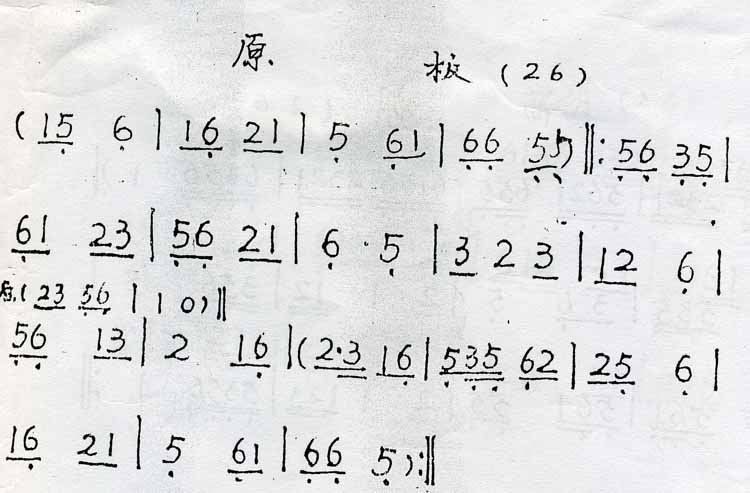 原 板 (26)
(15 6 | 16 21 | 5 61 | 66 55) ‖: 56 35 |
61 23 | 56 21 | 6 · 5 | 3 2 3 | 12 6 |
(23 56 | 1 0) ‖
56 13 | 2 16 | (2·3 16 | 535 62 | 25 6 |
16 21 | 5 61 | 66 5) :‖